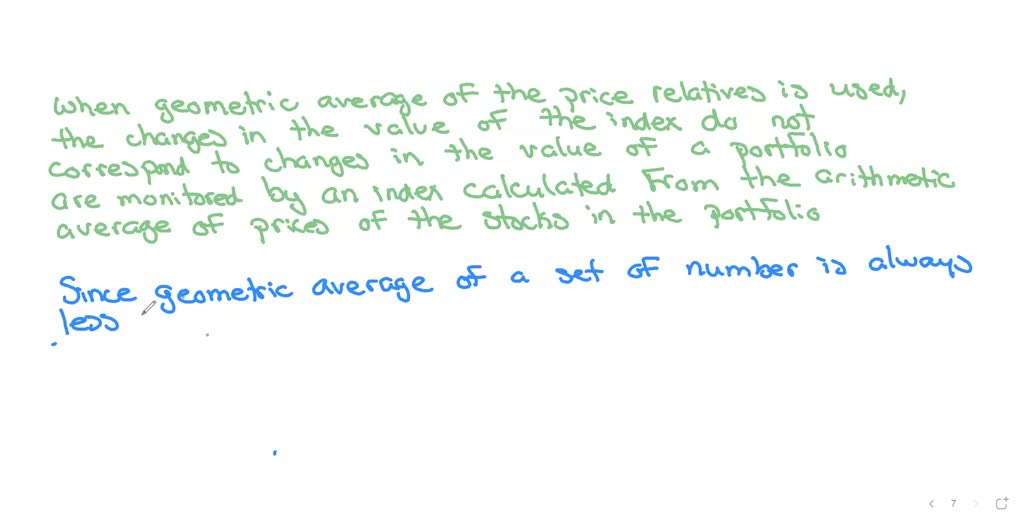 when geometric average of the price relatives is used,
the changes in the value of the index do not
correspond to changes in the value of a portfolio
are monitored by an index calculated From the arithmetic
average of prices of the stocks in the portfolio
Since geometric average of a set of number is always
less
7